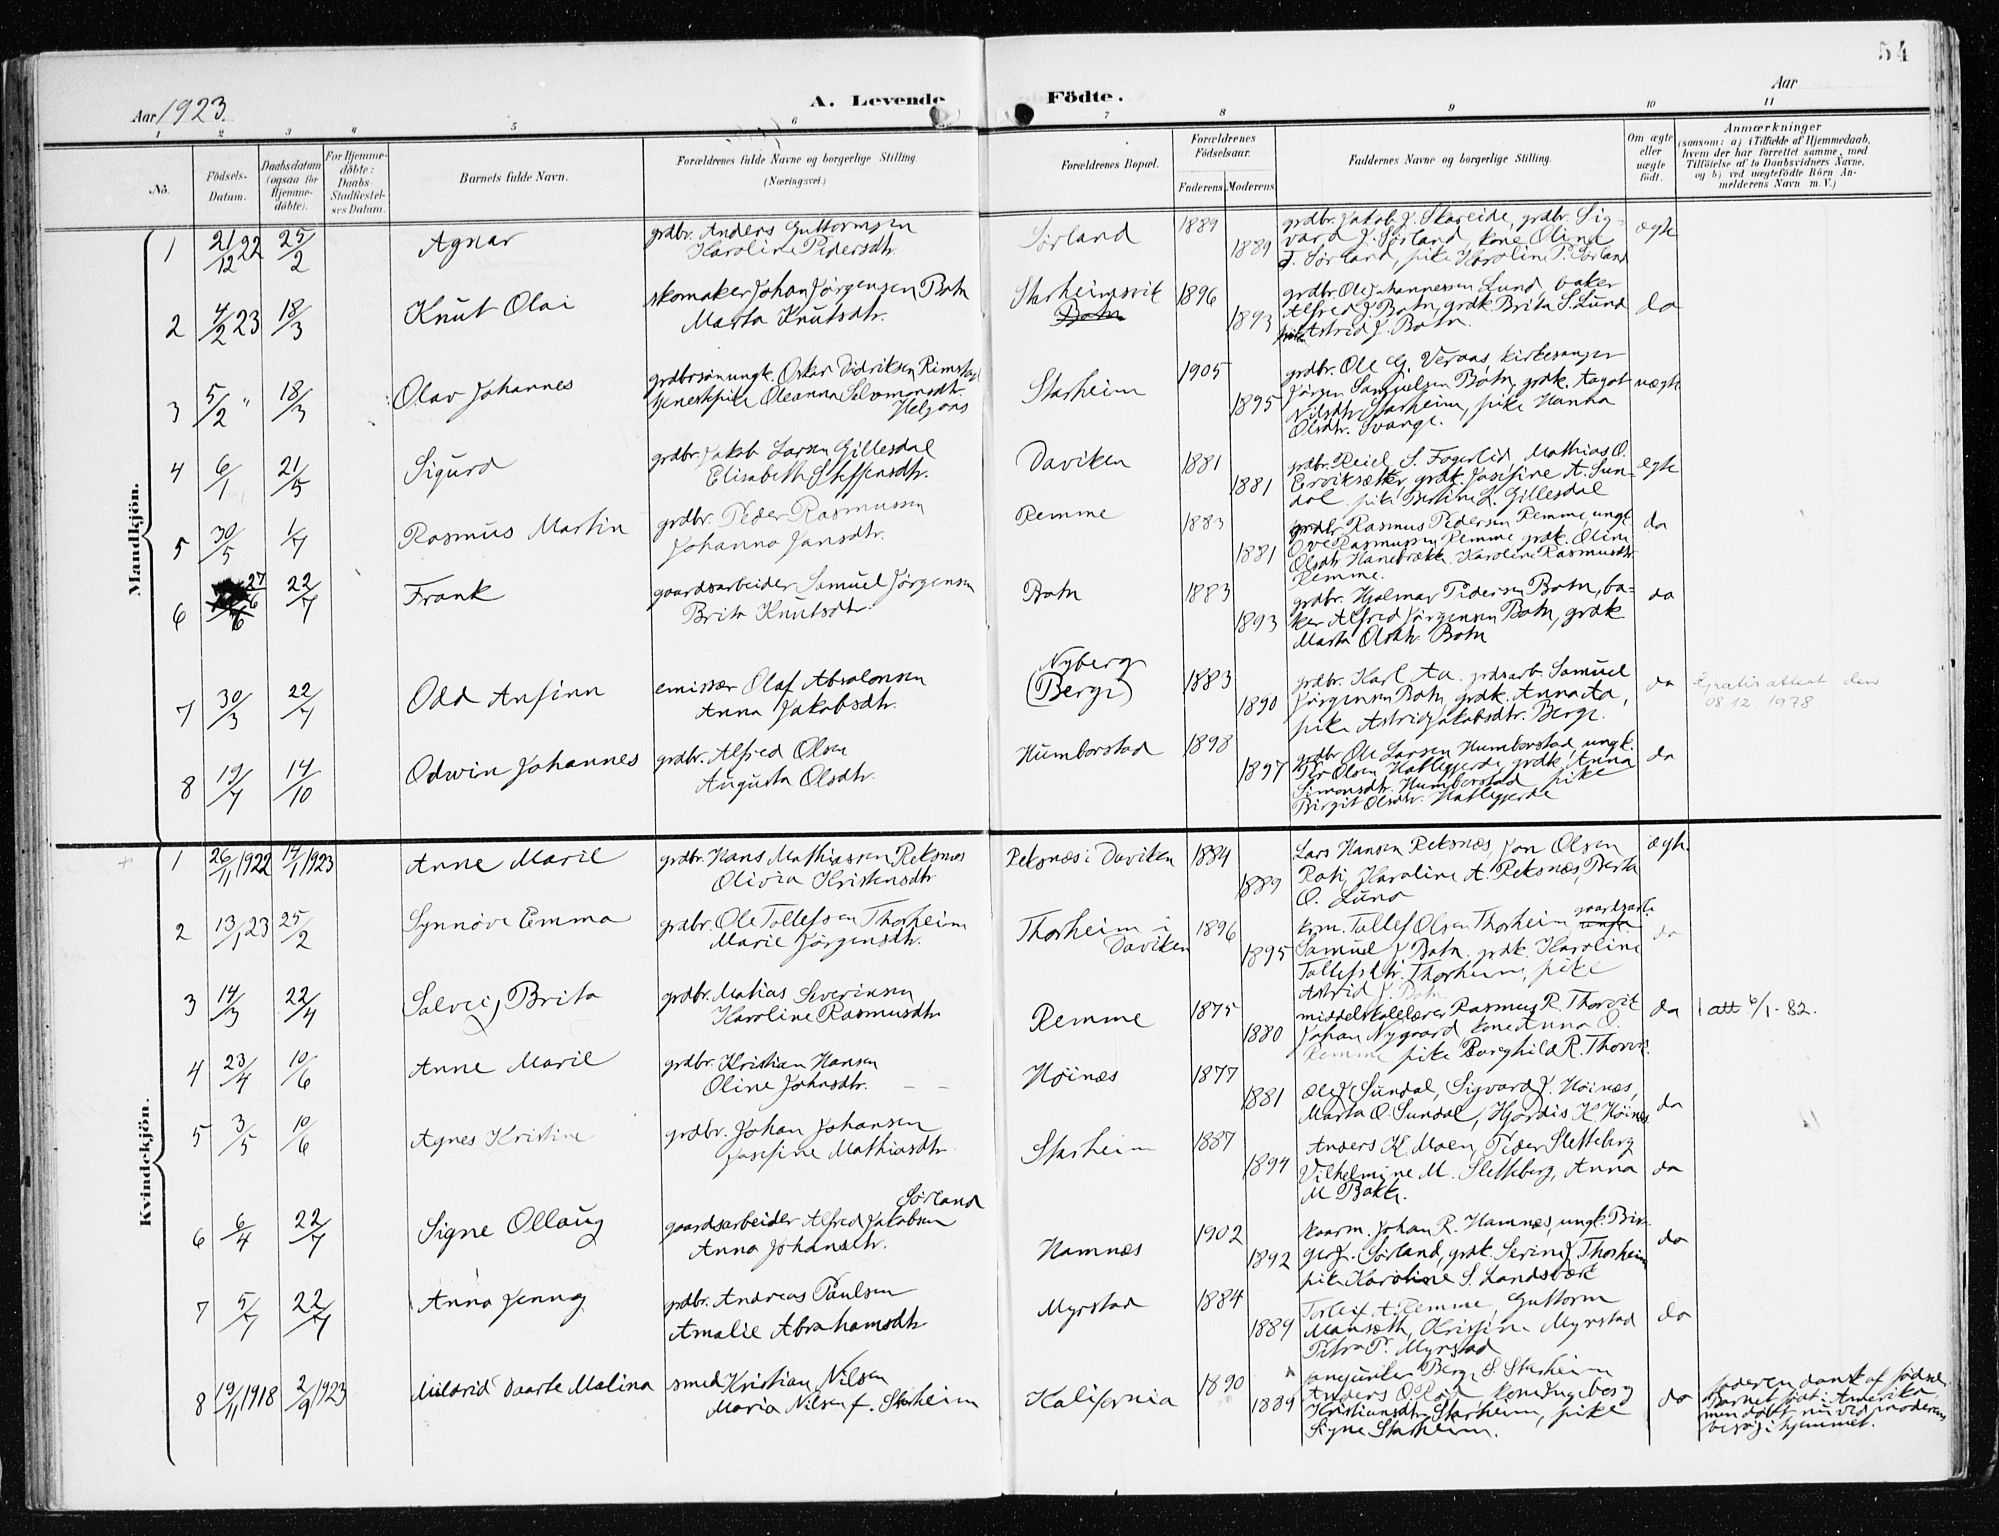 54
Aar 1923.
A. Levende Födte.
Aar
1 2 3 4 5 6 7 8 9 10 11
No.
Födsels-Datum.
Daabsdatum (ogsaa for Hjemme-döbte).
For Hjemme-döbte: Daabs Stadfæstel-ses Datum.
Barnets fulde Navn.
Forældrenes fulde Navne og borgerlige Stilling (Næringsvei.)
Forældrenes Bopæl.
Forældrenes Födselsaar.
Faderens. Moderens.
Faddernes Navne og borgerlige Stilling.
Om ægte eller uægte födt.
Anmærkninger
(saasom: a) i Tilfælde af Hjemmedaab, hvem der har forrettet samme, med Tilföielse af to Daabsvidners Navne, og b) ved uægtefödte Börn An-melderens Navn m. V.)
Mandkjön.
1 21/12 22 25/2 Agnar
grdbr. Anders Guttormsen
Karoline Pedersdtr.
Sørland 1889 1889
grdbr. Jakob J. Skareide, grdbr. Sig-
vard J. Sørland, kone Olina
J. Sørland, pike Karoline P. Sørland
ægte
2 4/2 23 18/3 Knut Olai
skomaker Johan Jørgensen Botn
Marta Knutsdtr.
Starheimsvik
Botn
1896 1893
grdbr. Ole Johannessen Lund, baker
Alfred J. Botn, grdk. Brita S. Lund
pike Astrid J. Botn.
do
3 5/2 " 18/3 Olav Johannes
grdbrsønungk. Oskar Didriksen Rimstad
tjenestepike Oleanna Salomonsdtr.
Helgaas
Starheim 1905 1895
grdbr. Ole G. Veraas, kirkesanger
Jørgen Samuelsen Botn, grdk. Aagot
Nilsdtr. Starheim, pike Hanna
Olsdtr. Svange.
uægte
4 6/1 21/5 Sigurd
grdbr. Jakob Larsen Gillesdal
Elisabeth Steffensdtr.
Daviken 1881 1881
grdbr. Reiel S. Fagerlid, Mathias O.
Erviksætter, grdk. Josefine A. Sun-
dal, pike Berline L. Gillesdal
ægte
5 30/5 1/7 Rasmus Martin
grdbr. Peder Rasmussen
Johanna Jansdtr.
Remme 1883 1881
grdbr. Rasmus Pedersen Remme, ungk.
Ove Rasmussen Remme, grdk. Oline
Olsdtr. Hanebrække, Karoline Rasmusdtr.
Remme.
da
6 27/6 22/7 Frank
gaardsarbeider Samuel Jørgensen
Brita Knutsdtr.
Botn 1883 1893
grdbr. Hjalmar Pedersen Botn, ba-
ker Alfred Jørgensen Botn, grdk
Marta Olsdtr. Botn
do
7 30/3 22/7 Odd Anfinn
emissær Olaf Absalonsen
Anna Jakobsdtr.
Nyberg
(Berge)
1883 1890
grdbr. Karl Aa. grdsarb. Samuel
Jørgensen Botn, grdk. Anna Aa,
pike Astrid Jakobsdtr. Berge.
da
Gratis attest den
08.12.1978
8 19/7 14/10 Odwin Johannes
grdbr. Alfred Olsen
Augusta Olsdtr.
Humborstad 1898 1897
grdbr. Ole Larsen Humborstad, ungk.
Per Olsen Hatlegjerde, grdk. Anna
Simonsdtr. Humborstad, pike
Birgit Olsdtr. Hatlegjerde
da
Kvindekjön.
1 26/11 1922 14/1 1923 Anne Marie
grdbr. Hans Mathiassen Reksnæs
Olivia Kristensdtr.
Reksnæs i Daviken 1884 1889
Lars Hansen Reksnæs, Jon Olsen
Roti, Karoline A. Reksnæs, Berta
O. Lund
ægte
2 13/1 23 25/2 Synnøve Emma
grdbr. Ole Tollefsen Thorheim
Marie Jørgensdtr.
Thorheim i
Daviken
1896 1895
kårm. Tollef Olsen Thorheim gaardsarb.
Samuel J. Botn, grdk. Karoline
Tollefsdtr. Thorheim, pike
Astrid J. Botn
do
3 14/3 22/4 Solveig Brita
grdbr. Matias Severinsen
Karoline Rasmusdtr.
Remme 1875 1880
middelskolelærer Rasmus R. Thorvik
Johan Nygaard, kone Anna O.
Remme, pike Borghild R. Thorvik.
da
1 att 6/1-82.
4 23/4 10/6 Anne Marie
grdbr. Kristian Hansen
Oline Johnsdtr.
Høinæs 1877 1881
Ole J. Sundal, Sigvard J. Høinæs,
Marta O. Sundal, Hjørdis K Høinæs
da
5 3/5 10/6 Agnes Kristine
grdbr. Johan Johansen
Josefine Mathiasdtr.
Starheim 1887 1894
Anders K. Moen, Peder Sletteberg
Vilhelmine M. Sletteberg, Anna
M Bakke.
da
6 6/4 22/7 Signe Ollaug
Sørland
gaardsarbeider Alfred Jakobsen
Anna Johansdtr.
Hamnæs 1902 1892
kaarm. Johan R. Hamnæs, ungk. Bir-
ger J. Sørland, grdk. Serine J. Thorheim
pike Karoline S. Landsværk
do
7 5/7 22/7 Anna Jenny
grdbr. Andreas Paulsen
Amalie Abrahamsdtr.
Myrstad 1884 1889
Torleif A. Remme, Guttorm
Maurseth, Kristine Myrstad
Petra P. Myrstad
do
8 19/11 1918 2/9 1923 Mildrid Daarte Malina
smed Kristian Nilsen
Maria Nilsen f. Starheim
Kalifornia 1890 1889
Berge S. Starheim
Anders O. Lød, kone Ingeborg
Kristiansdtr. Starheim, pike
Signe Starheim.
do
Faderen dansk af fødsel.
Barnet født i Amerika,
men døbt nu ved moderens
besøg i hjemmet.